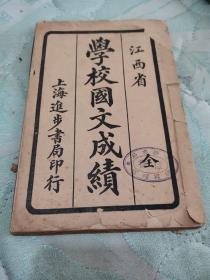 江西省
學校國文成績
全
上海進步書局印行